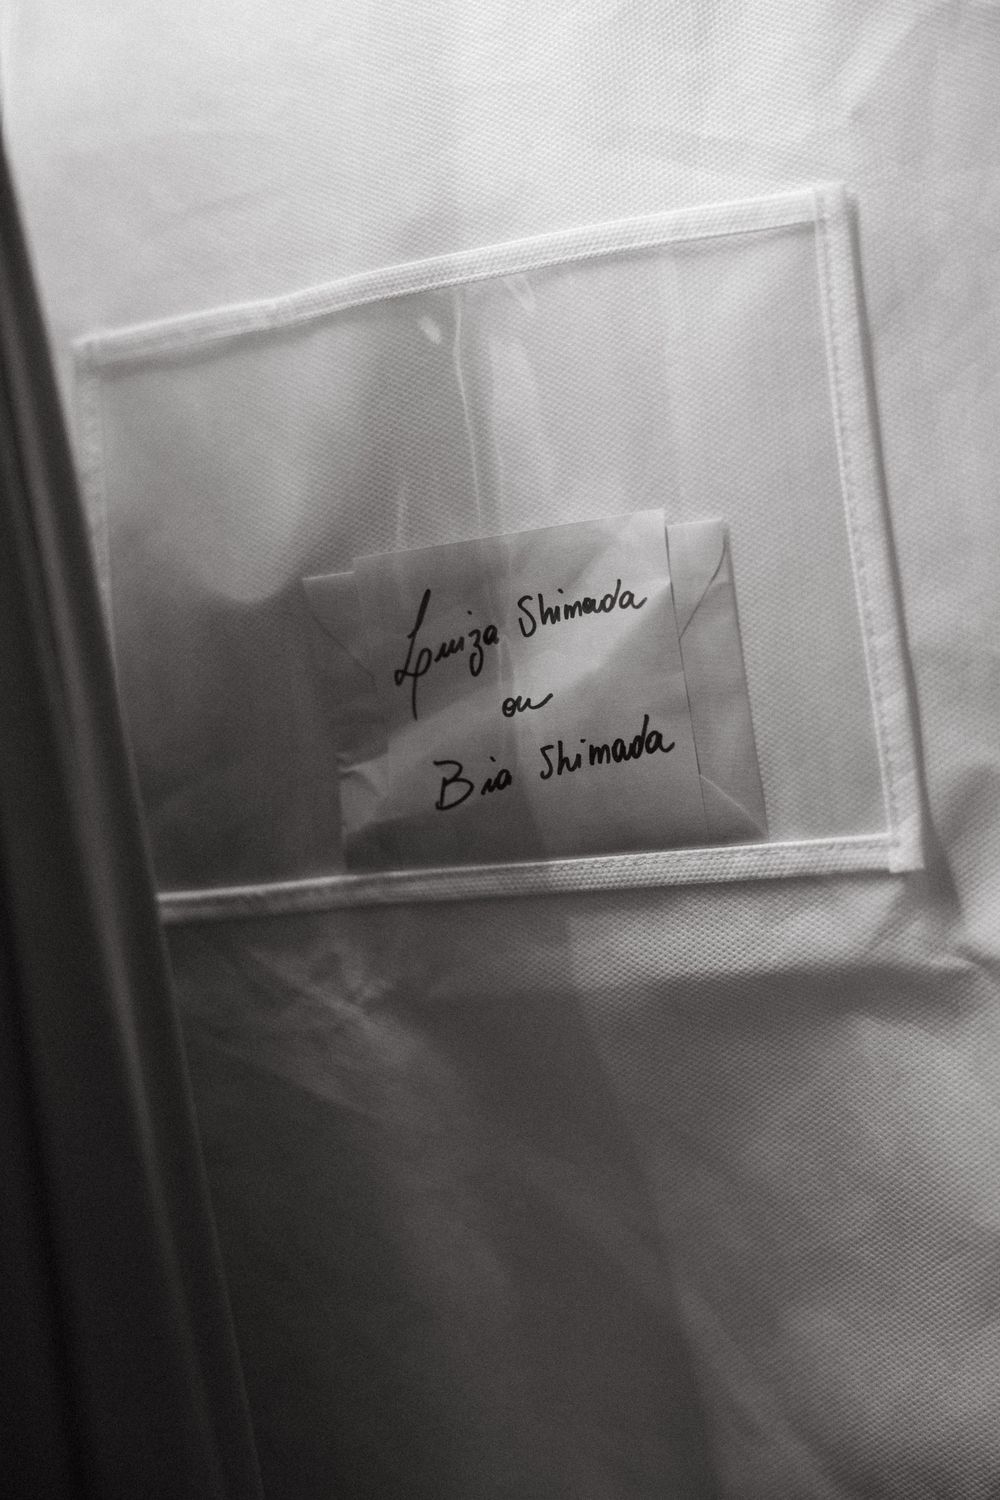 Luiza Shimada
ou
Bia Shimada